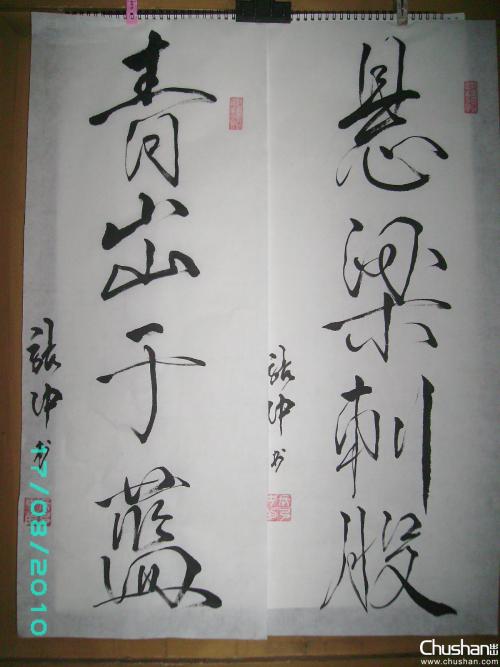 悬梁刺股
张冲书
青出于蓝
张冲书
17/08/2010
Chushan出山
www.chushan.com